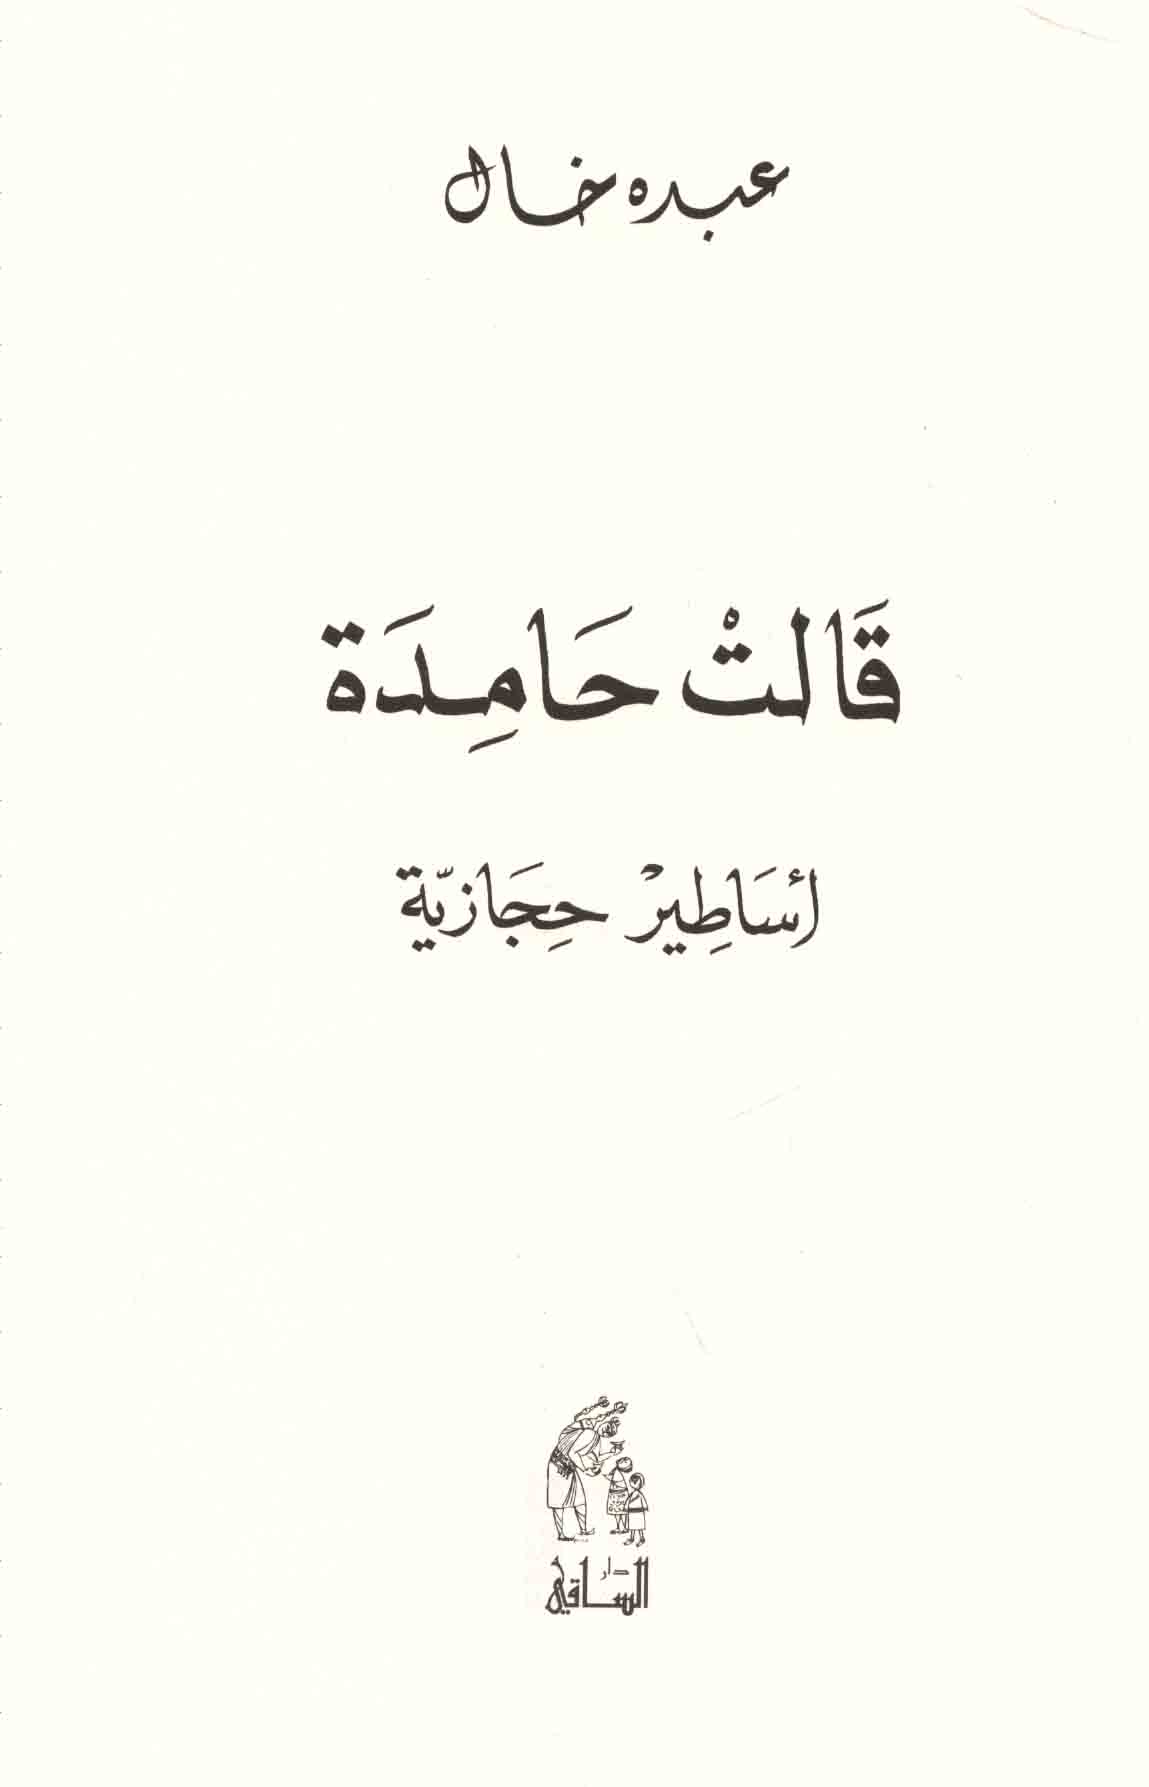 عبده خال
قَالتْ حَامِدَة
أسَاطِيرْ حِجَازيّة
دار
الساقي